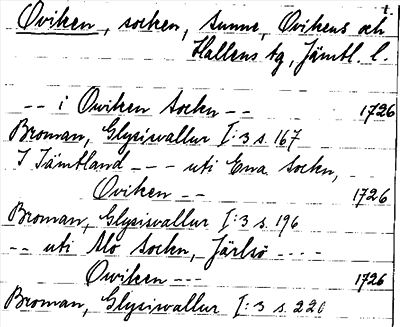 Oviken, socken, Sunne, Ovikens och
Hallens tg, Jämtl. l.
-- i Owiken Sockn -- 1726
Broman, Glysisvallur I:3 s. 167
I Jämtland --- uti Ena Sockn,
Oviken -- 1726
Broman, Glysisvallur I:3 s. 196
-- uti Alo Sockn, Järlsö ----
Owiken --- 1726
Broman, Glysisvallur I:3 s. 220